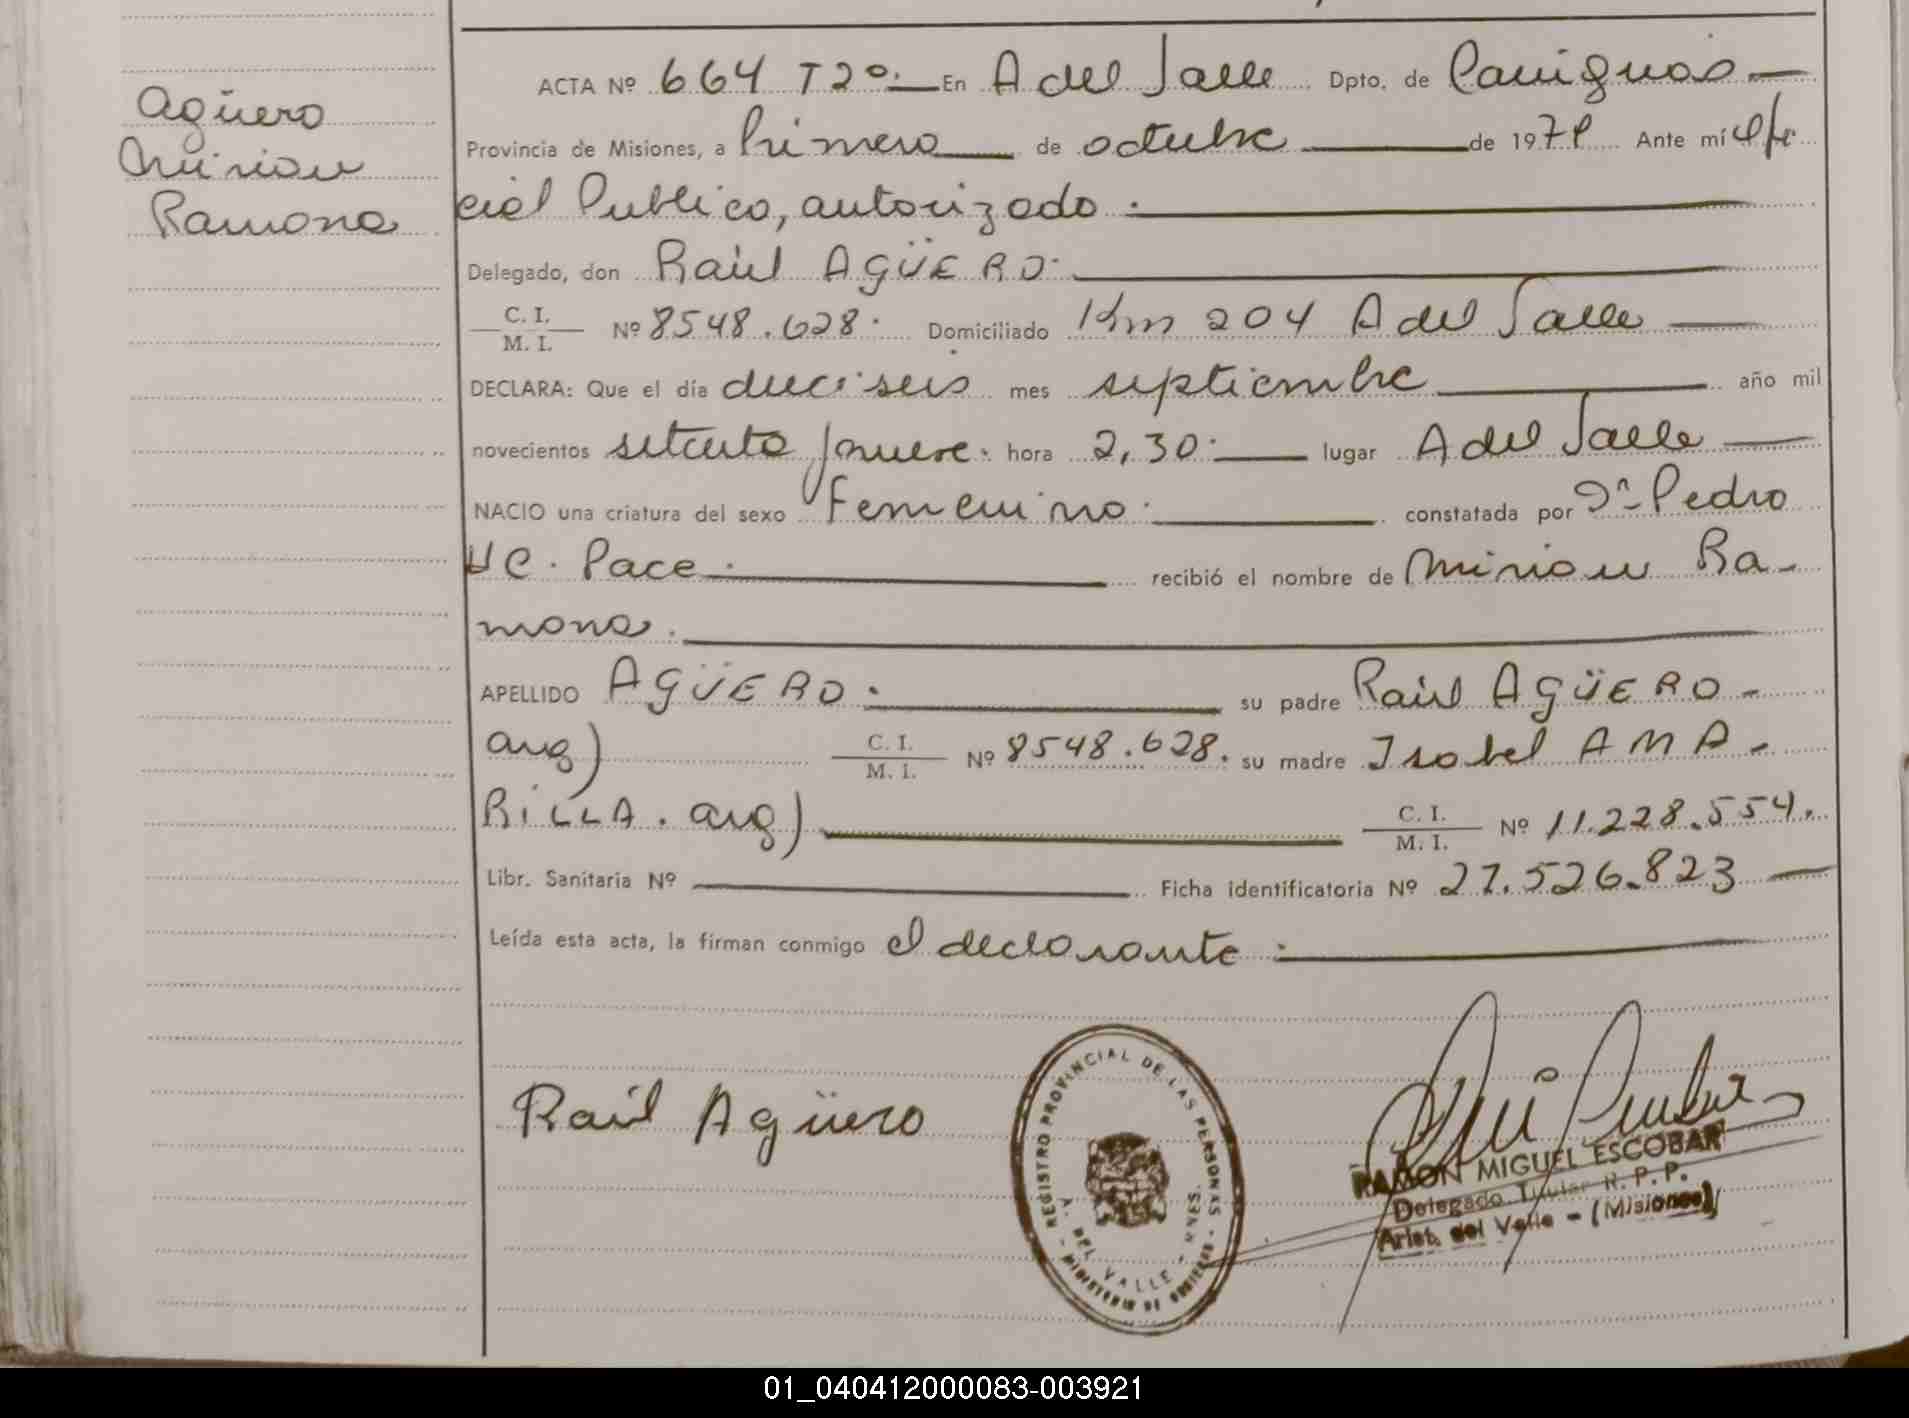 Agüero
Mirian
Ramona
ACTA Nº 664 T2º. En A del Valle Dpto. de Cainguas
Provincia de Misiones, a Primero de octubre de 1979 Ante mí Ofi
cial Publico, autorizado.
Delegado, don Raúl AGÜERO.
C. I.
M. I. Nº 8548.628. Domiciliado Km 204 A del Valle
DECLARA: Que el día dieciseis mes septiembre año mil
novecientos setenta y nueve. hora 2,30. lugar A del Valle
NACIO una criatura del sexo Femenino. constatada por Dn Pedro
Pace. recibió el nombre de Mirian Ra-
mona.
APELLIDO AGÜERO. su padre Raúl AGÜERO-
arg) C. I.
M. I. Nº 8548.628. su madre Isabel AMA-
RILLA. arg) C. I.
M. I. Nº 11.228.554.
Libr. Sanitaria Nº Ficha identificatoria Nº 27.526.823
Leída esta acta, la firman conmigo el declarante.
Raúl Agüero
REGISTRO PROVINCIAL DE LAS PERSONAS
A. DEL VALLE - MNES.
MINISTERIO DE GOBIERNO
RAMON MIGUEL ESCOBAR
Delegado Titular R. P. P.
Arist. del Valle - (Misiones)
01_040412000083-003921